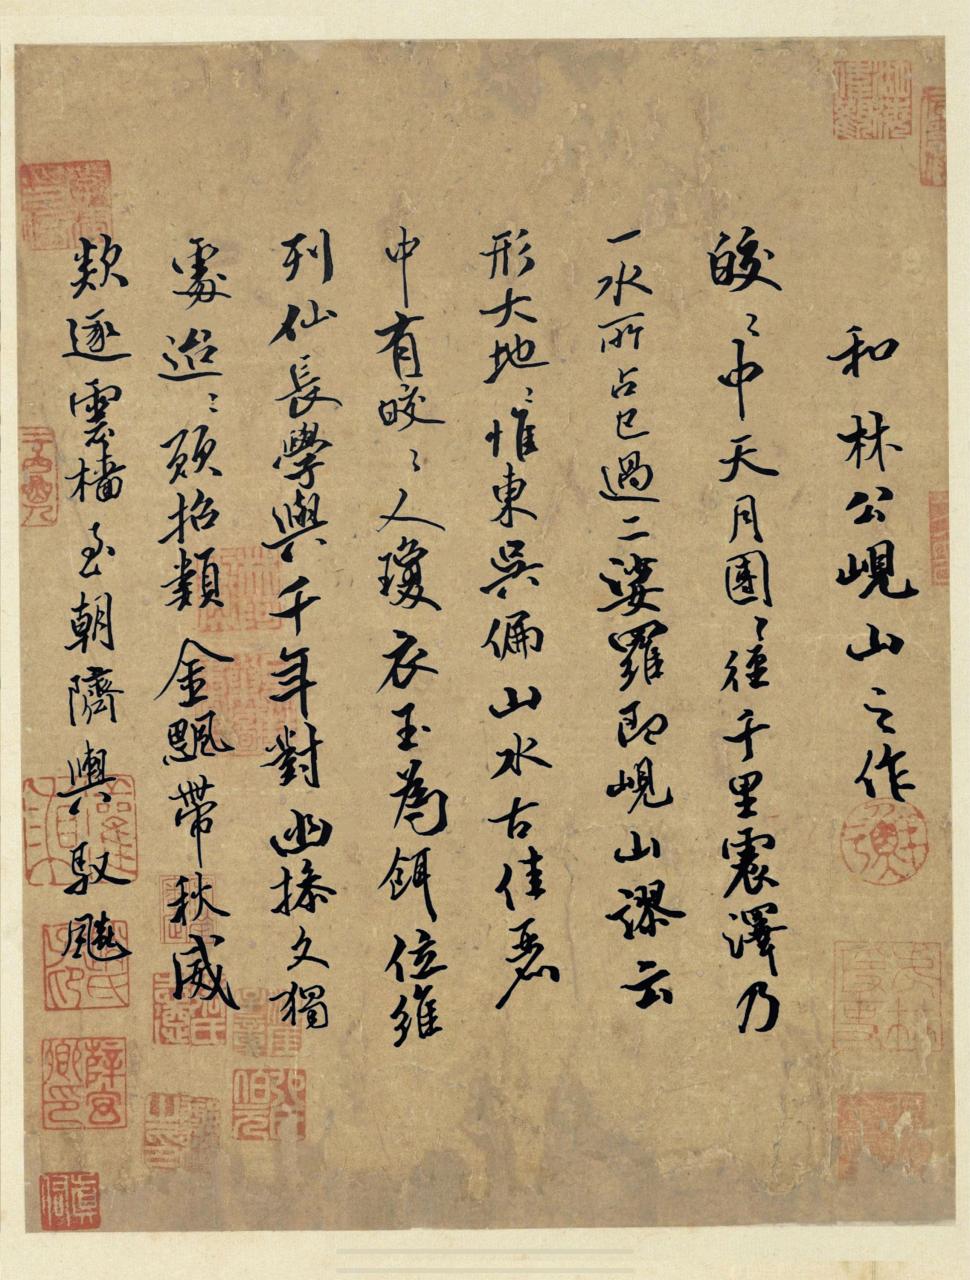 和林公峴山之作
皎〻中天月團〻徑千里震澤乃
一水所占已過二娑羅即峴山謬云
形大地〻惟東吳偏山水古佳麗
中有皎〻人瓊衣玉為餌位維
列仙長學與千年對幽操久獨
處迢〻願招類金飈帶秋威
欻逐雲檣至朝隮輿馭飈